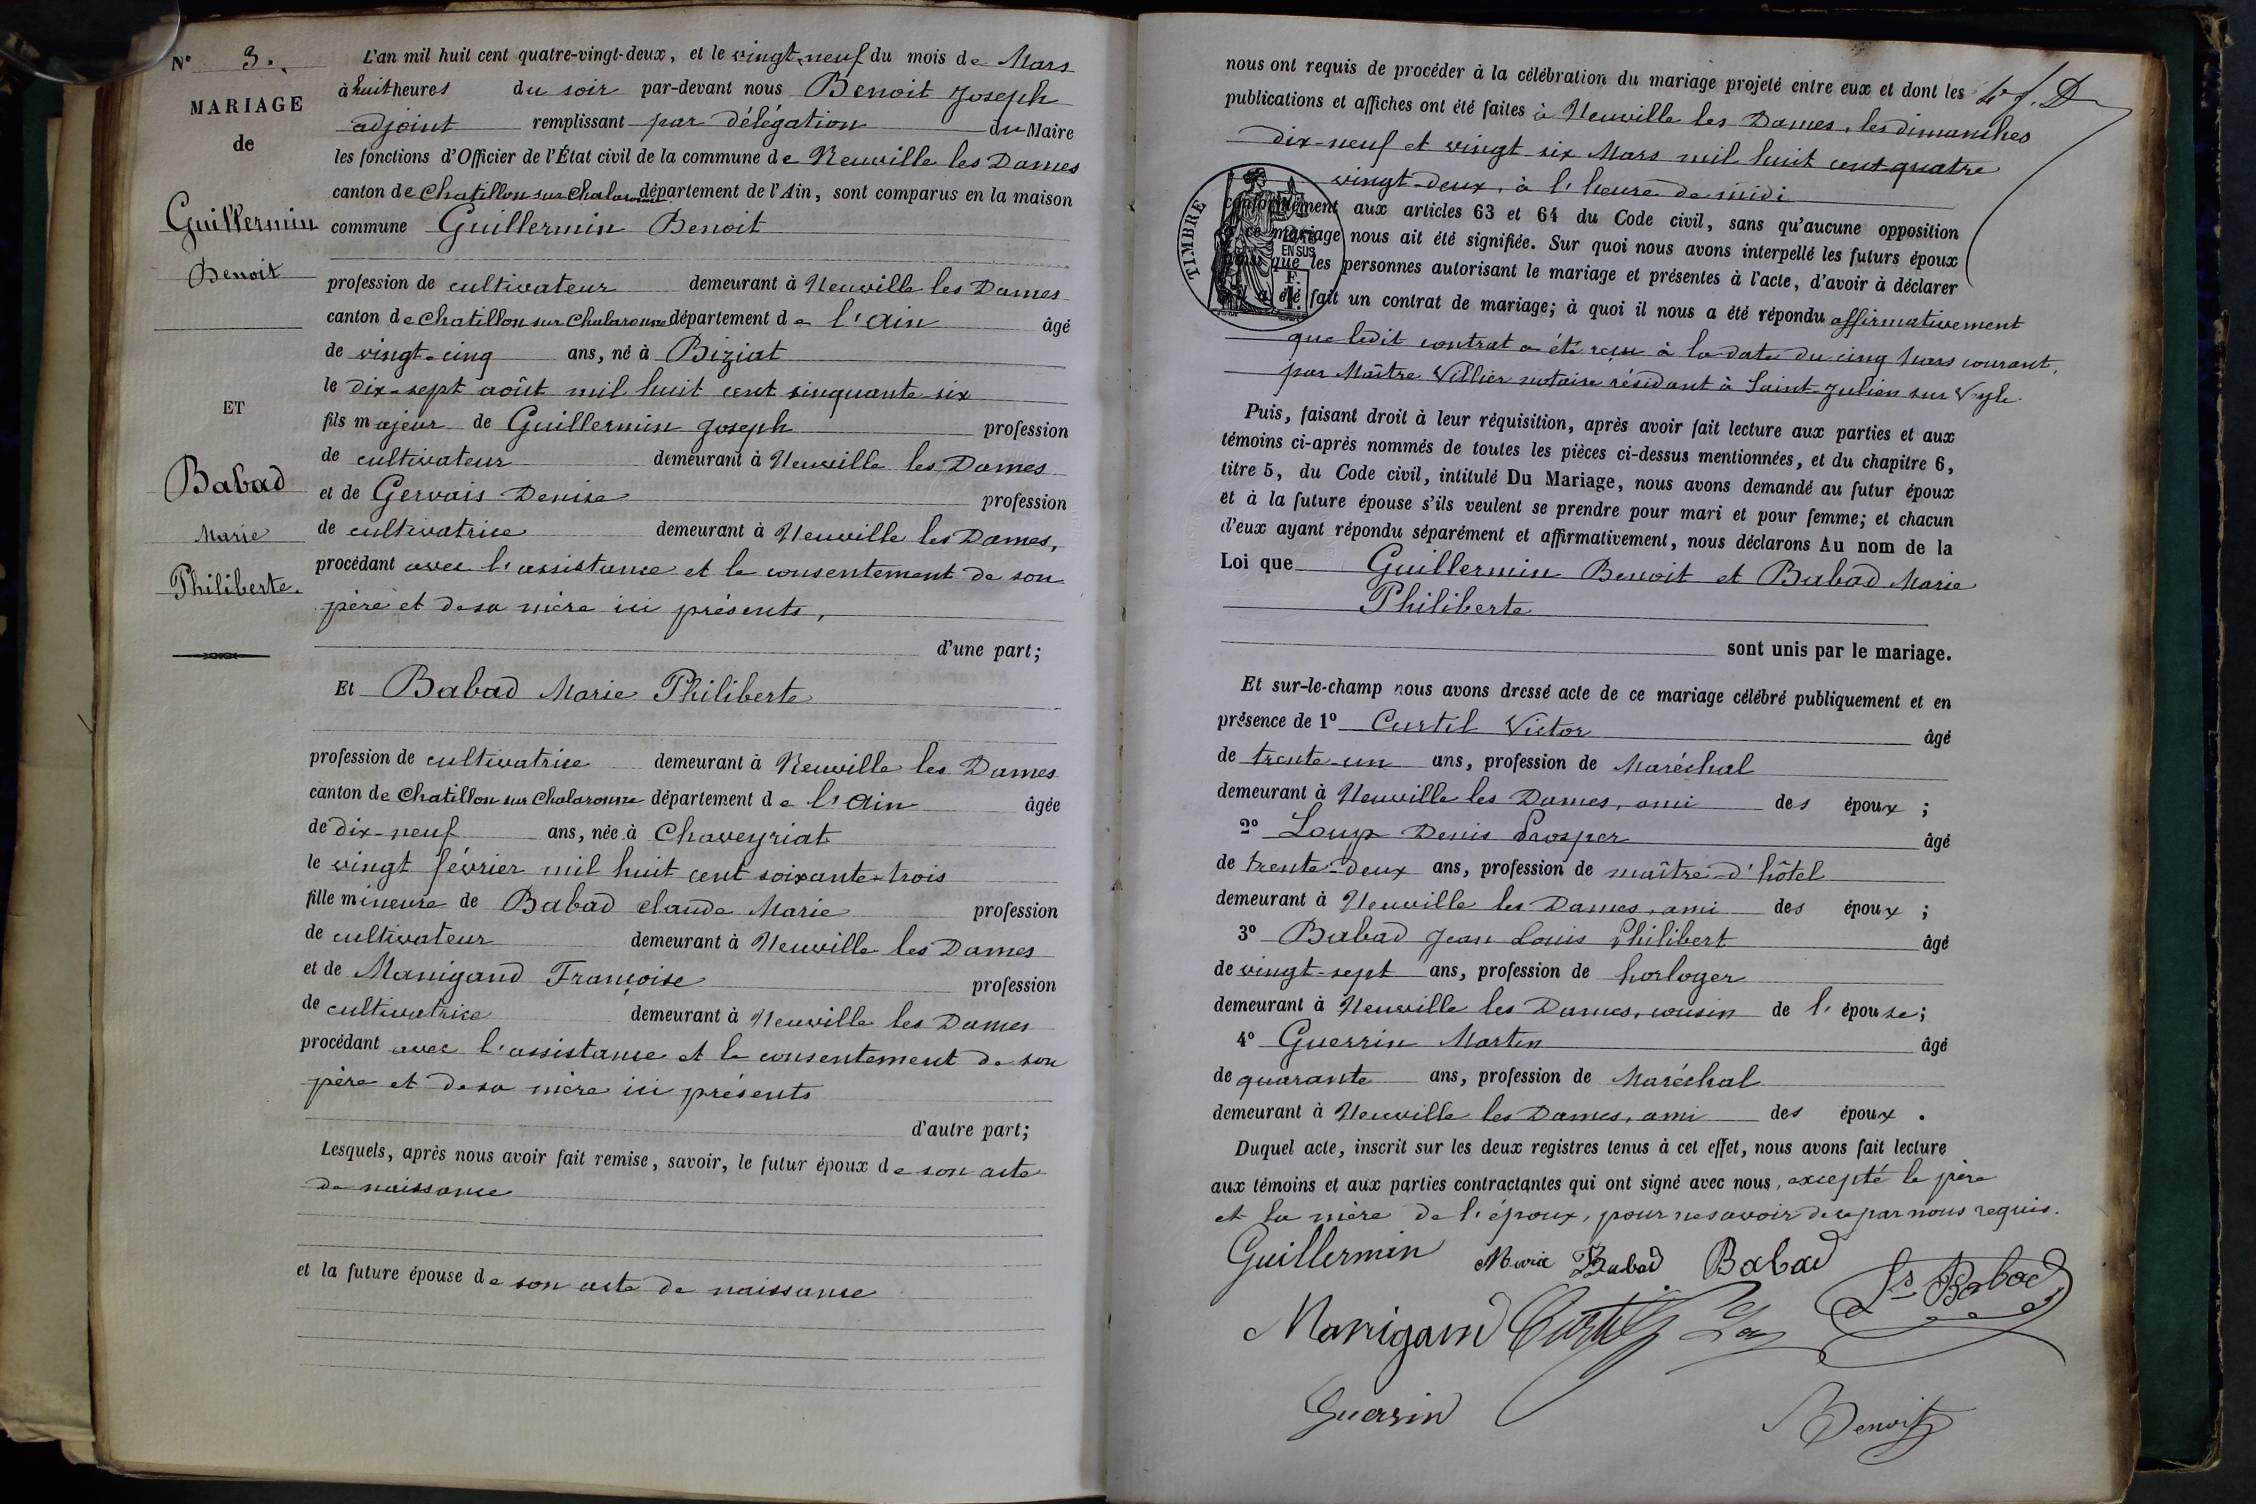 N° 3.
MARIAGE
de
Guillermin
Benoit
ET
Babad
Marie
Philiberte.
L'an mil huit cent quatre-vingt-deux, et le vingt-neuf du mois de Mars
à huit heures du soir par-devant nous Benoit Joseph
adjoint remplissant par délégation du Maire
les fonctions d'Officier de l'État civil de la commune de Neuville les Dames
canton de Chatillon sur Chalaronne département de l'Ain, sont comparus en la maison
commune Guillermin Benoit
profession de cultivateur demeurant à Neuville les Dames
canton de Chatillon sur Chalaronne département de l'Ain âgé
de vingt-cinq ans, né à Biziat
le dix-sept août mil huit cent cinquante six
fils majeur de Guillermin Joseph profession
de cultivateur demeurant à Neuville les Dames
et de Gervais Denise profession
de cultivatrice demeurant à Neuville les Dames,
procédant avec l'assistance et le consentement de son
père et de sa mère ici présents,
d'une part;
Et Babad Marie Philiberte
profession de cultivatrice demeurant à Neuville les Dames
canton de Chatillon sur Chalaronne département de l'Ain âgée
de dix-neuf ans, née à Chaveyriat
le vingt février mil huit cent soixante-trois
fille mineure de Babad Claude Marie profession
de cultivateur demeurant à Neuville les Dames
et de Manigand Françoise profession
de cultivatrice demeurant à Neuville les Dames
procédant avec l'assistance et le consentement de son
père et de sa mère ici présents
d'autre part;
Lesquels, après nous avoir fait remise, savoir, le futur époux de son acte
de naissance
et la future épouse de son acte de naissance
nous ont requis de procéder à la célébration du mariage projeté entre eux et dont les
publications et affiches ont été faites à Neuville les Dames, les dimanches
dix-neuf et vingt six Mars mil huit cent quatre
vingt-deux, à l'heure de midi
TIMBRE
EN SUS
F.
conformément aux articles 63 et 64 du Code civil, sans qu'aucune opposition
à ce mariage nous ait été signifiée. Sur quoi nous avons interpellé les futurs époux
ainsi que les personnes autorisant le mariage et présentes à l'acte, d'avoir à déclarer
s'il a été fait un contrat de mariage; à quoi il nous a été répondu affirmativement
que ledit contrat a été reçu à la date du cinq Mars courant,
par Maître Villier notaire résidant à Saint-Julien sur Veyle.
Puis, faisant droit à leur réquisition, après avoir fait lecture aux parties et aux
témoins ci-après nommés de toutes les pièces ci-dessus mentionnées, et du chapitre 6,
titre 5, du Code civil, intitulé Du Mariage, nous avons demandé au futur époux
et à la future épouse s'ils veulent se prendre pour mari et pour femme; et chacun
d'eux ayant répondu séparément et affirmativement, nous déclarons Au nom de la
Loi que Guillermin Benoit et Babad Marie
Philiberte
sont unis par le mariage.
Et sur-le-champ nous avons dressé acte de ce mariage célébré publiquement et en
présence de 1° Curtil Victor âgé
de trente-un ans, profession de Maréchal
demeurant à Neuville les Dames, ami des époux ;
2° Loup Denis Prosper âgé
de trente-deux ans, profession de maître-d'hôtel
demeurant à Neuville les Dames, ami des époux ;
3° Babad Jean Louis Philibert âgé
de vingt-sept ans, profession de horloger
demeurant à Neuville les Dames, cousin de l'épouse;
4° Guerrin Martin âgé
de quarante ans, profession de Maréchal
demeurant à Neuville les Dames, ami des époux .
Duquel acte, inscrit sur les deux registres tenus à cet effet, nous avons fait lecture
aux témoins et aux parties contractantes qui ont signé avec nous, excepté le père
et la mère de l'époux, pour ne savoir de ce par nous requis.
Guillermin Marie Babad Babad Ls Babad
Manigand Curtil
Guerrin Benoit